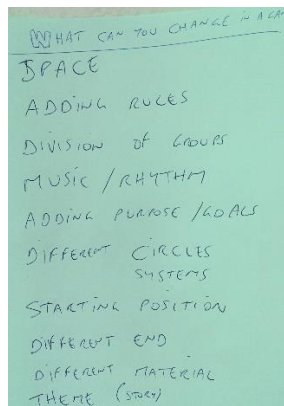 WHAT CAN YOU CHANGE IN A
SPACE
ADDING RULES
DIVISION OF GROUPS
MUSIC / RHYTHM
ADDING PURPOSE / GOALS
DIFFERENT CIRCLES
SYSTEMS
STARTING POSITION
DIFFERENT END
DIFFERENT MATERIAL
THEME (STORY)